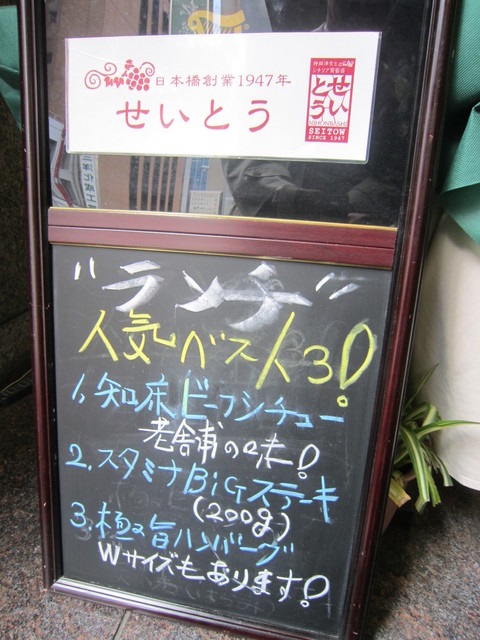 日本橋創業1947年
せいとう
せい
とう
NIHONBASHI
SEITOW
SINCE 1947
"ランチ"
人気ベスト3!
1、知床ビーフシチュー
老舗の味!
2.スタミナBiGステーキ
(200g)
3.極旨ハンバーグ
Wサイズもあります!